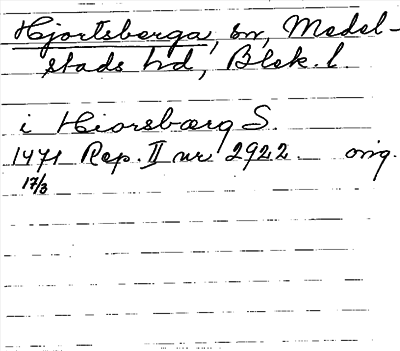 Hjortsberga, sn, Medel-
stads hd, Blek. l.
i Hiorsbærg S.
1471 Rep. II nr 2922 orig.
17/3